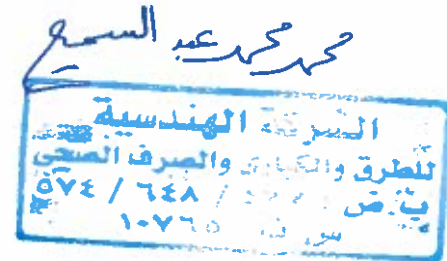 محمد محمد عبد السميع
الشركة الهندسية
للطرق والكبارى والصرف الصحى
ب ض / ٦٤٨ / ٥٧٤
س ت ١٠٧٦٥